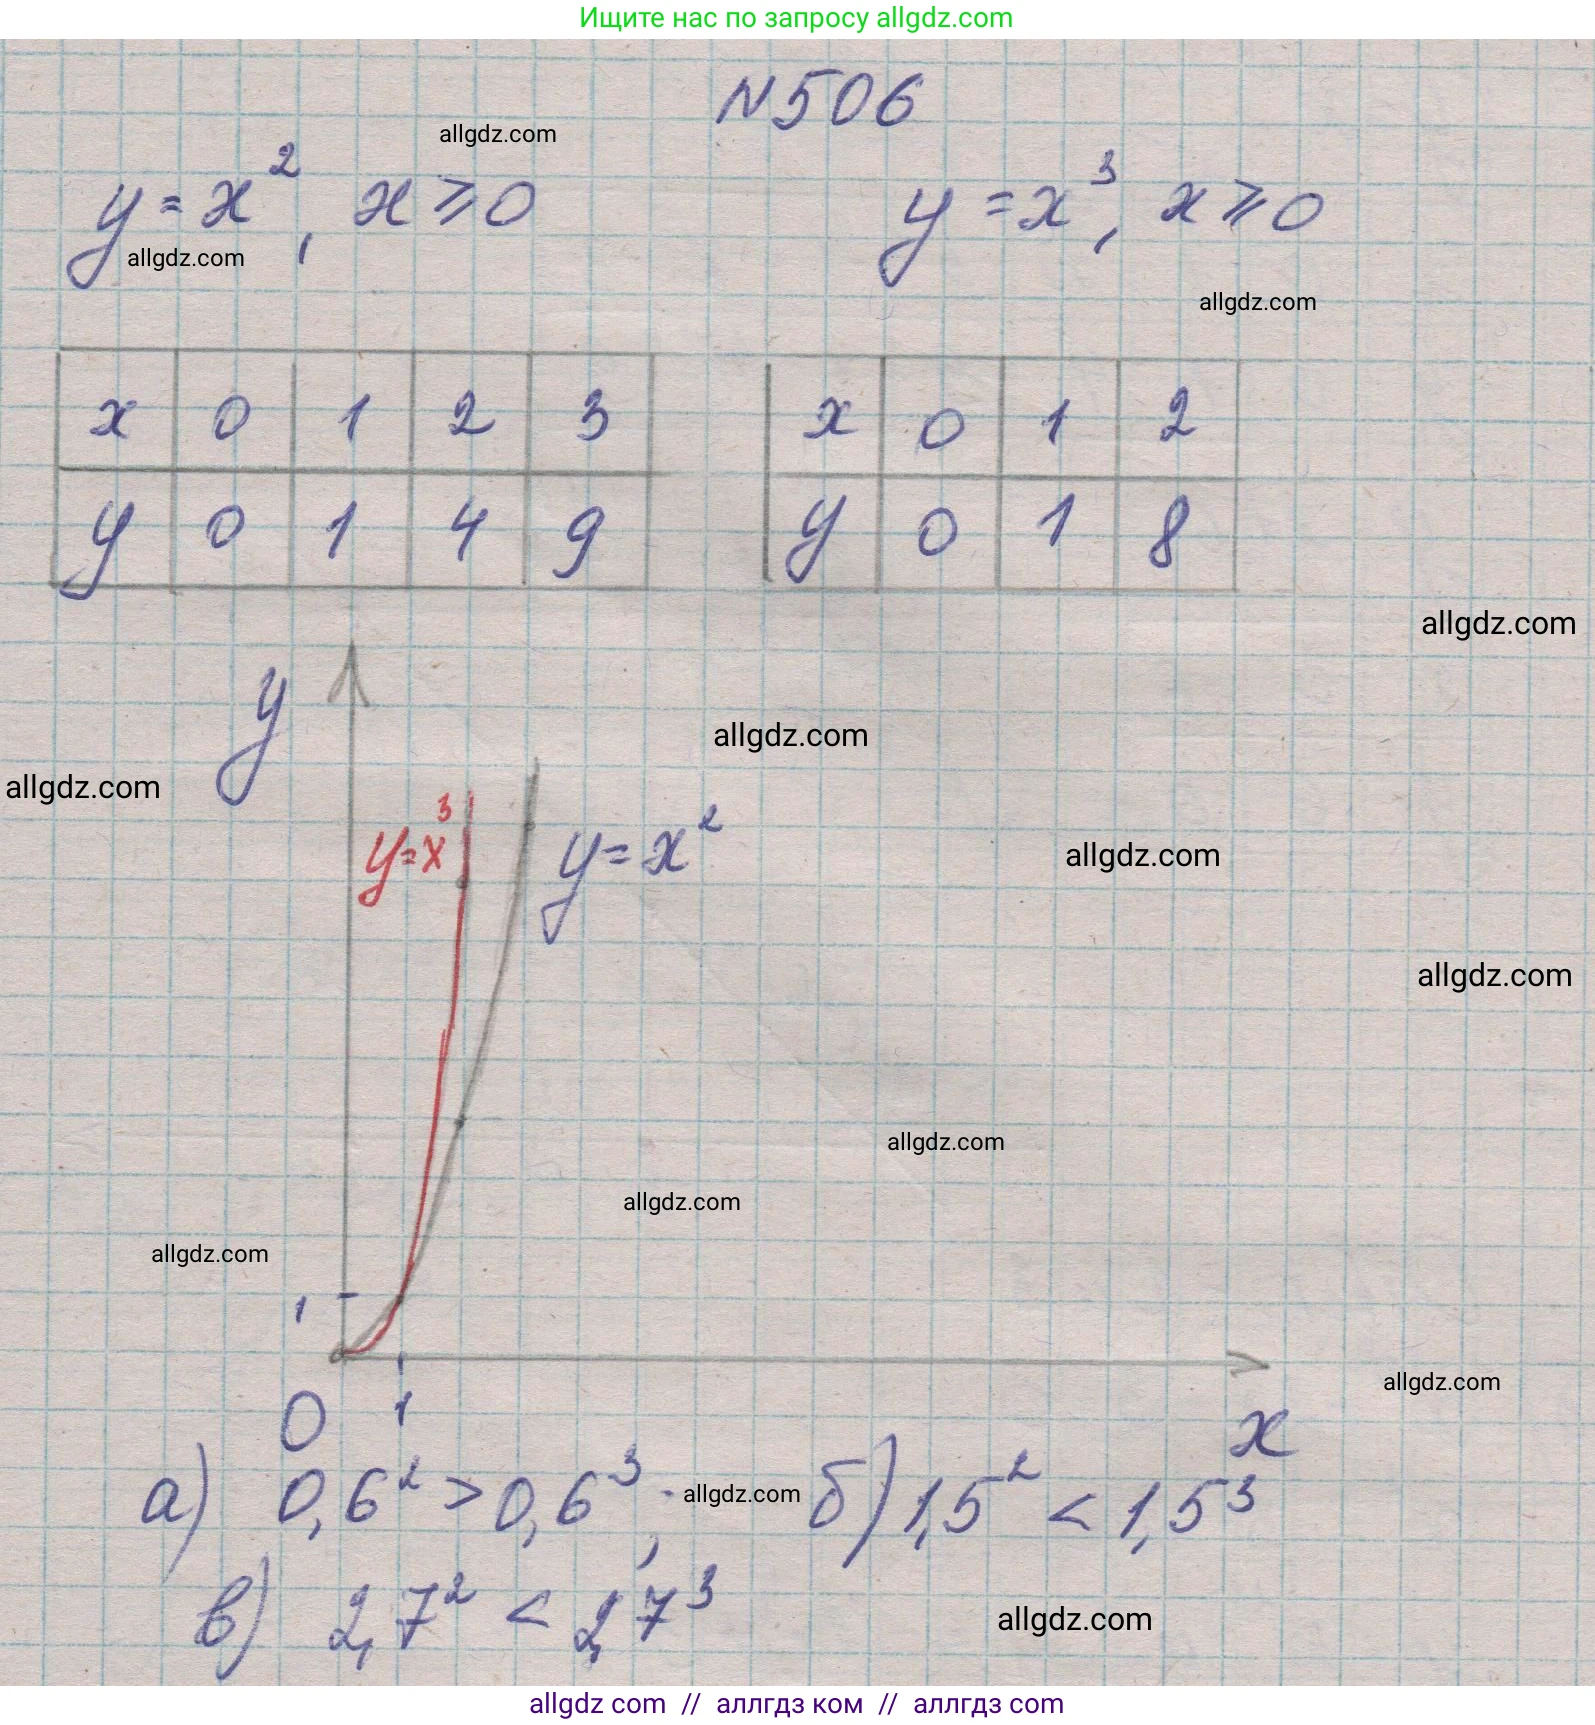 Ищите нас по запросу allgdz.com
N506
allgdz.com
y = x², x ⩾ 0
y = x³, x ⩾ 0
allgdz.com
allgdz.com
x 0 1 2 3
x 0 1 2
y 0 1 4 9
y 0 1 8
allgdz.com
y
allgdz.com
allgdz.com
y=x³
y=x²
allgdz.com
allgdz.com
allgdz.com
allgdz.com
allgdz.com
1
allgdz.com
0 1
x
а) 0,6² > 0,6³;
allgdz.com
б) 1,5² < 1,5³
в) 2,7² < 2,7³
allgdz.com
allgdz com // аллгдз ком // аллгдз com